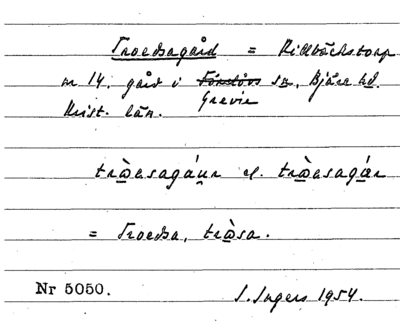 Troedsagård = Killebäckstorp
nr 14. gård i ~~Förslövs~~ sn, Bjäre hd.
Grevie
Krist. län.
trὼasagáu̯r el. trὼasagǽr
= Troedsa, trὼsa.
Nr 5050. I. Ingers 1954.